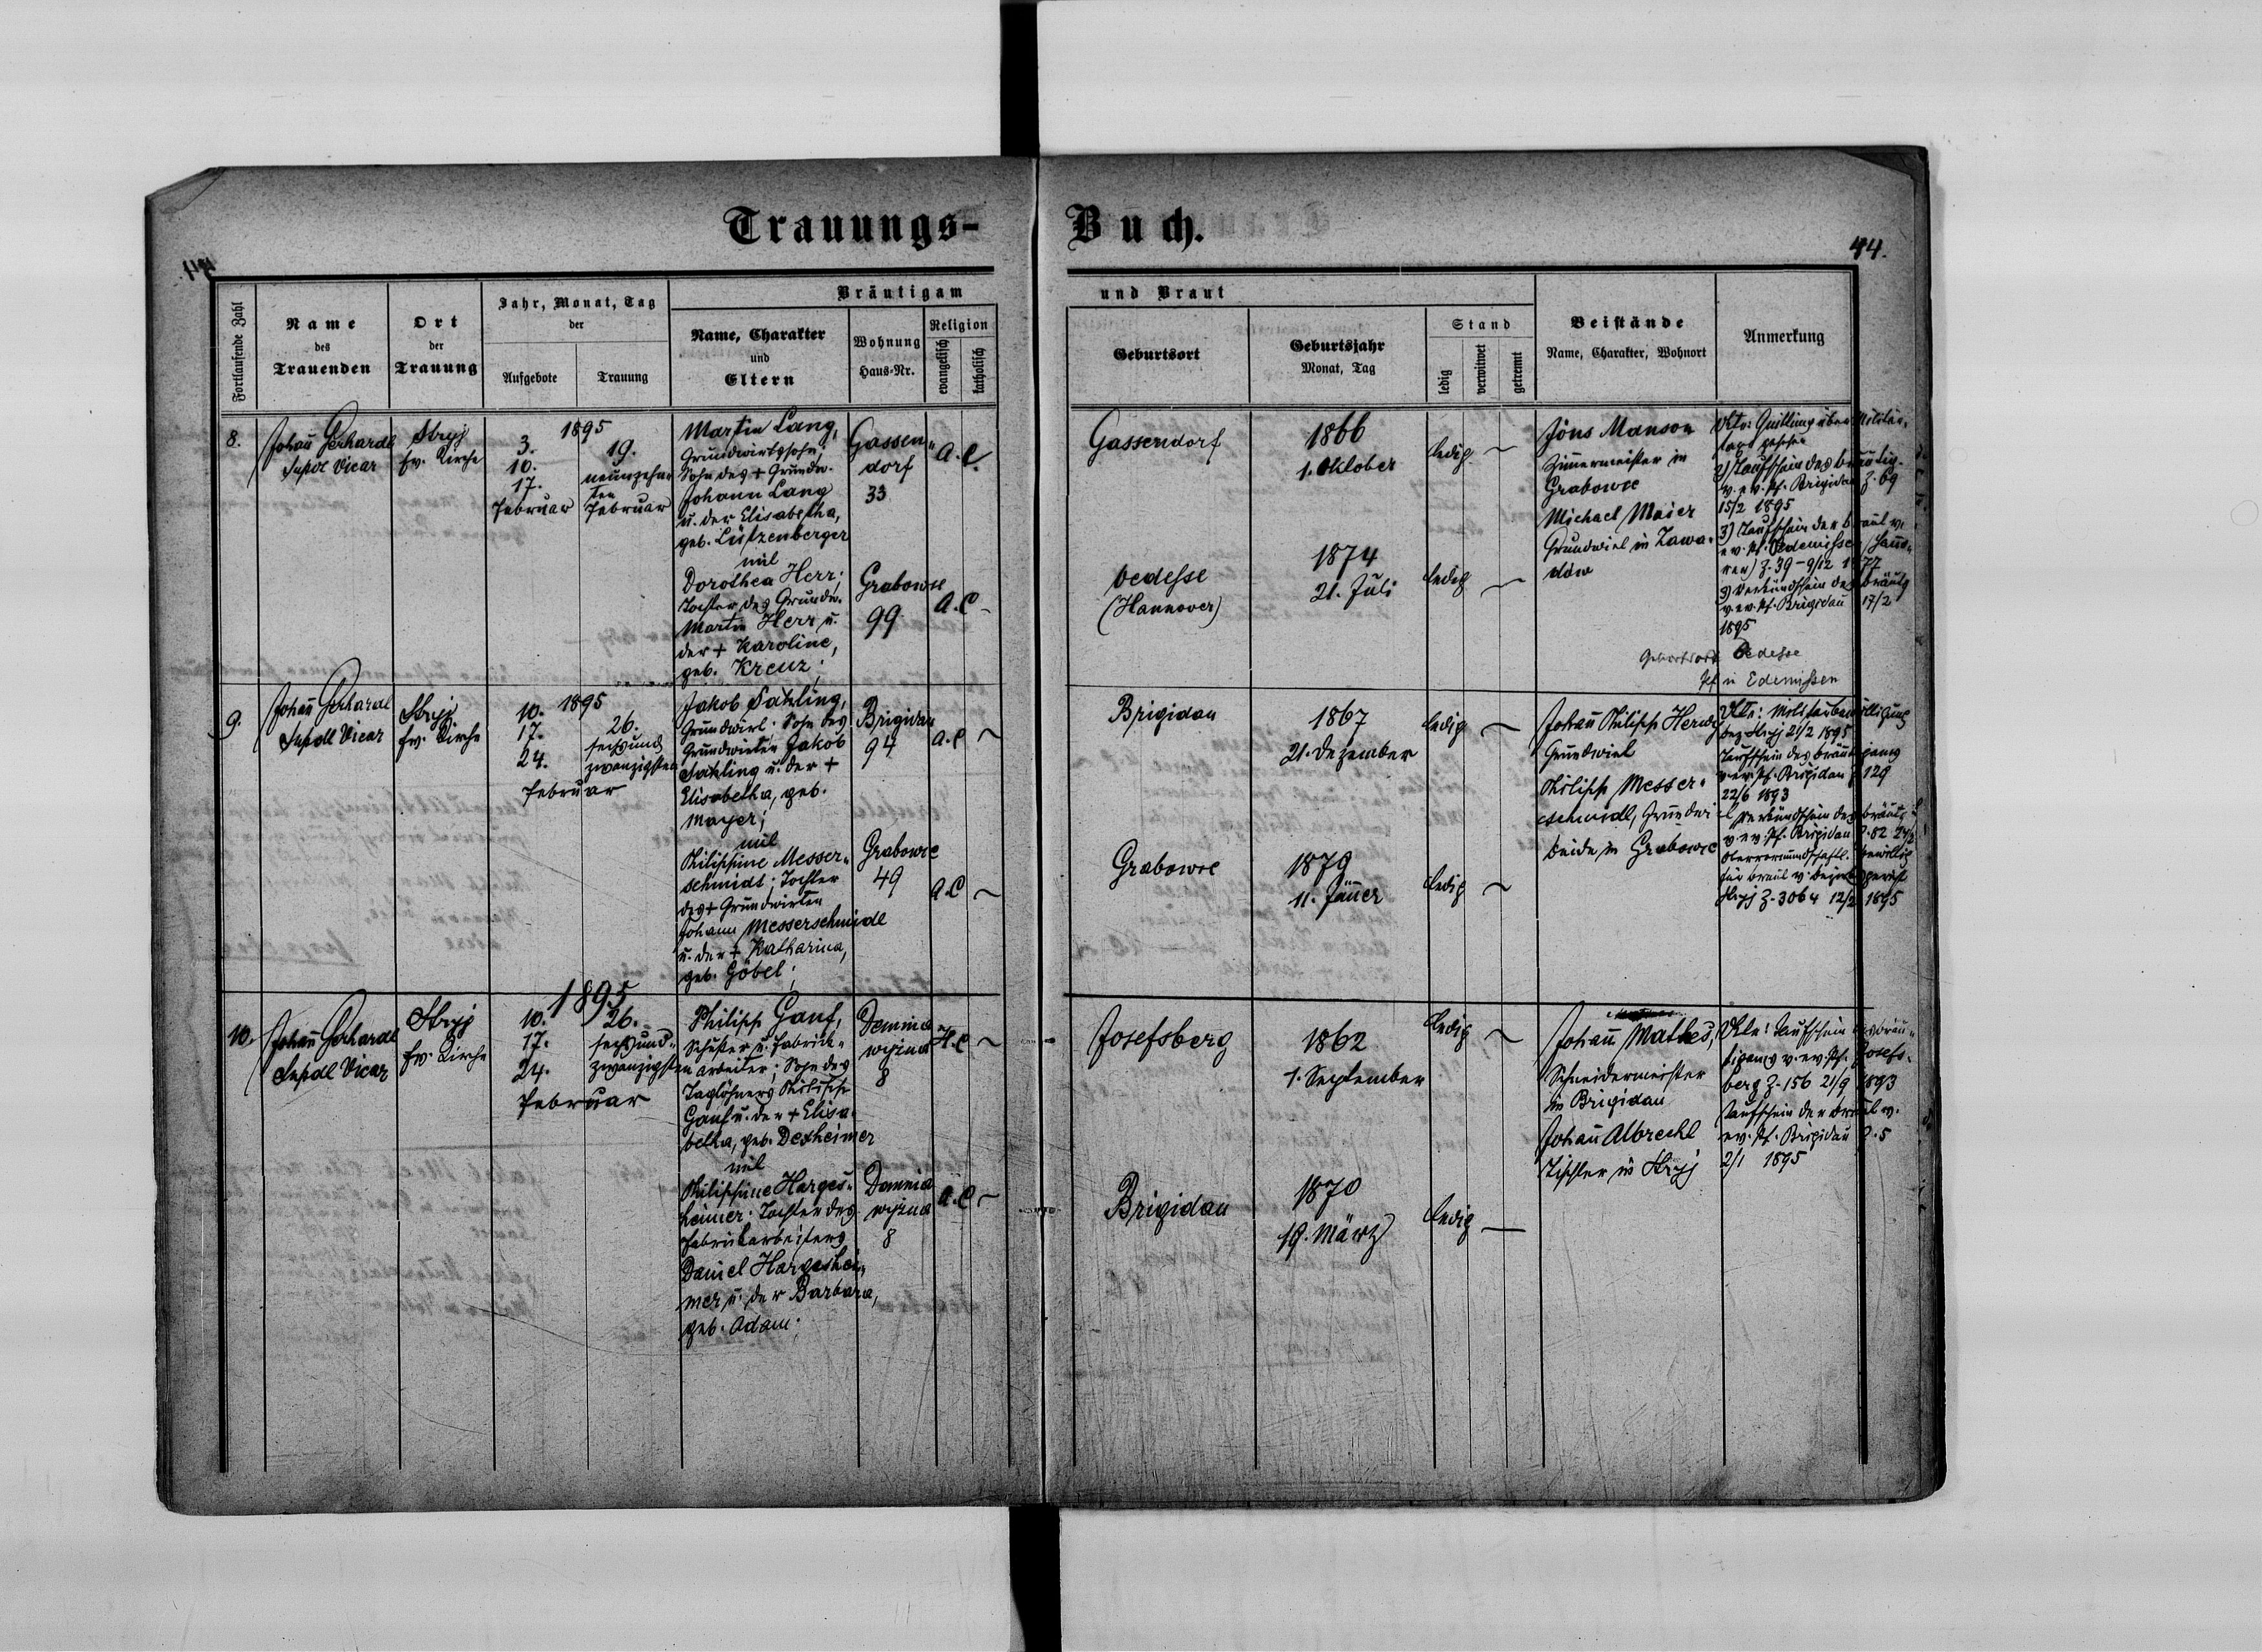 Trauungs-
Buch.
44.
44.
Fortlaufende Zahl
Name
des
Trauenden
Ort
der
Trauung
Jahr, Monat, Tag
der
Aufgebote
Trauung
Bräutigam
Name, Charakter
und
Eltern
Wohnung
Haus-Nr.
Religion
evangelisch
katholisch
und Braut
Geburtsort
Geburtsjahr
Monat, Tag
Stand
ledig
verwitwet
getrennt
Beistände
Name, Charakter, Wohnort
Anmerkung
8.
Johañ Gerhardt
Supdt Vicar
Stryj
Ev. Kirche
1895
3.
10.
17.
Februar
19.
neunzehn-
ten
Februar
Martin Lang,
Grundwirtssohn,
Sohn des + Grundw.
Johann Lang
u. der Elisabetha,
geb. Lützenberger
mit
Dorothea Herr;
Tochter des Grundw.
Martin Herr u.
der + Karoline,
geb. Kreuz;
Gassen-
dorf
33
A.C.
Grabowce
99
A.C
Gassendorf
1866
1. Oktober
ledig
Oedesse
(Hannover)
1874
21. Juli
ledig
Jöns Manson
Zimmermeister in
Grabowce
Michael Maier
Grundwirt in Zawa-
dów
Akte: Quittung über Militär-
taxe gesehen
2) Taufschein des Bräutig.
v. ev. Pf. Brigidau Z. 69
15/2 1895
3) Taufschein der Braut v.
ev. Pf. Edemissen (Hano-
ver) Z. 39 - 9/12 1877
Verkündschein des Bräutg
v. ev. Pf. Brigidau 17/2
1895
Geburtsort Oedesse
Pf in Edemissen
9.
Johañ Gerhardt
Supdt Vicar
Stryj
Ev. Kirche
1895
10.
17.
24.
26.
sechsund
zwanzigsten
Februar
Jakob Satzling,
Grundwirt. Sohn des
Grundwirten Jakob
Satzling u. der +
Elisabetha, geb.
Mayer;
mit
Philippine Messer-
schmidt; Tochter
des + Grundwirten
Johann Messerschmidt
u. der + Katharina,
geb. Göbel;
Brigidau
94
A.C
Grabowce
49
A.C
Brigidau
1867
21. Dezember
ledig
Grabowce
1879
11. Jäñer
ledig
Johañ Philipp Herwig
Grundwirt
Philipp Messer-
schmidt, Grundwirt
beide in Grabowce
Akte: Militärbewilligung
Bez. Stryj 21/2 1895
Taufschein des Bräutigams
v. ev. Pf. Brigidau Z 129
22/6 1893
Verkündschein des Bräutg
v. ev. Pf. Brigidau Z. 82 24/2
Obervormundschaftl. Bewillig
für Braut v. Bezirksgericht
Stryj Z. 3064 12/2 1895
10.
Johañ Gerhardt
Supdt Vicar
Stryj
Ev. Kirche
1895
10.
17.
24.
26.
sechsund-
zwanzigsten
Februar
Philipp Ganf,
Schuster u. Fabrick-
arbeiter; Sohn des
Taglöhners Philipp
Ganf u. der + Elisa-
betha, geb. Dexheimer
mit
Philippine Harges-
heimer; Tochter des
Fabrikarbeiters
Daniel Hargeshei-
mer u. der Barbara,
geb. Adam;
8
A.C
8
A.C
Josefsberg
1862
1. September
ledig
Brigidau
1870
19. März
ledig
Johañ Mathes,
Schneidermeister
in Brigidau
Johañ Albrecht
Tischler in Stryj
Akte: Taufschein des Bräu-
tigams v. ev. Pf. Josefs-
berg Z. 156 21/9 1893
Taufschein der Braut v.
ev. Pf. Brigidau Z. 5
2/1 1895